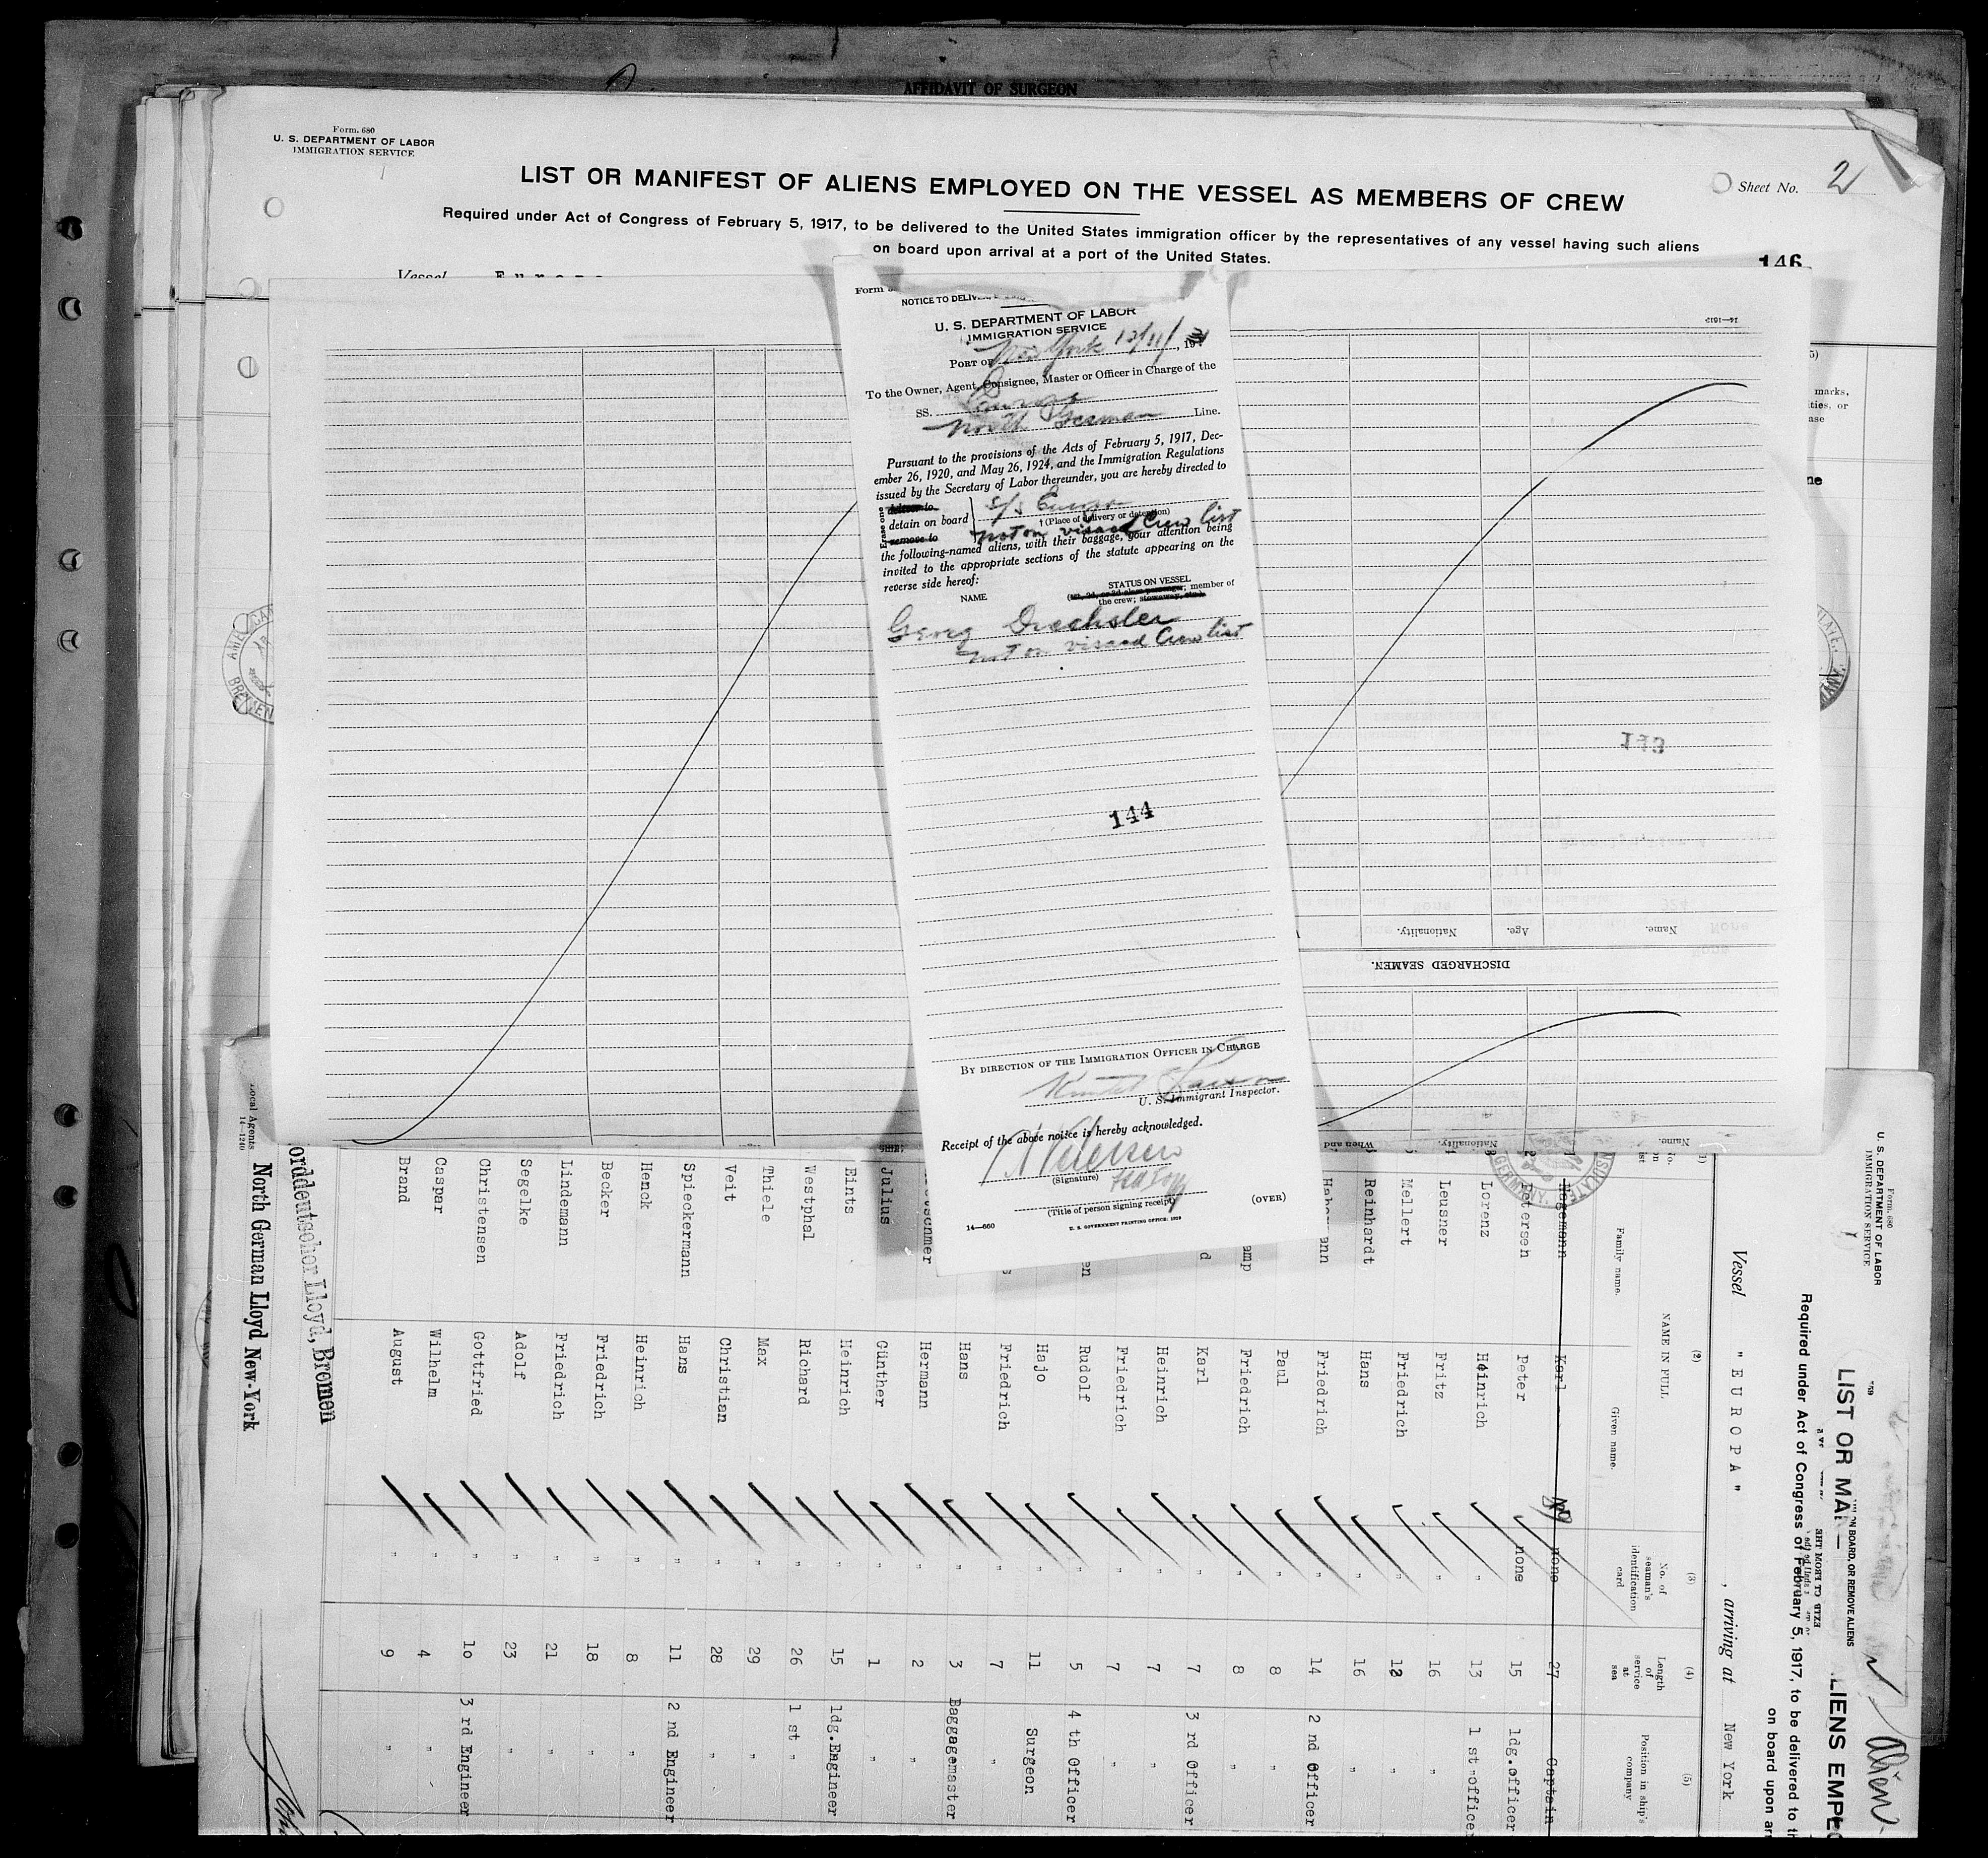 AFFIDAVIT OF SURGEON
Form. 680
U. S. DEPARTMENT OF LABOR
IMMIGRATION SERVICE
LIST OR MANIFEST OF ALIENS EMPLOYED ON THE VESSEL AS MEMBERS OF CREW
Sheet No. 2
Required under Act of Congress of February 5, 1917, to be delivered to the United States immigration officer by the representatives of any vessel having such aliens
on board upon arrival at a port of the United States.
146
Vessel Europa
Form
NOTICE TO
U. S. DEPARTMENT OF LABOR
IMMIGRATION SERVICE
PORT OF New York 12/11/, 19
To the Owner, Agent, Consignee, Master or Officer in Charge of the
SS. Europa
North German Line.
Pursuant to the provisions of the Acts of February 5, 1917, Dec-
ember 26, 1920, and May 26, 1924, and the Immigration Regulations
issued by the Secretary of Labor thereunder, you are hereby directed to
Erase one
deliver to
detain on board
remove to
S/S Europa
† (Place of delivery or detention)
not on visaed Crew list
the following-named aliens, with their baggage, your attention being
invited to the appropriate sections of the statute appearing on the
reverse side hereof:
NAME
STATUS ON VESSEL
(1st, 2d, or 3d class passenger; member of
the crew; stowaway, etc.)
Georg Drechsler
not on visaed Crew list
144
BY DIRECTION OF THE IMMIGRATION OFFICER IN CHARGE
U. S. Immigrant Inspector.
Receipt of the above notice is hereby acknowledged.
(Signature)
(Title of person signing receipt)
(OVER)
14—660
U. S. GOVERNMENT PRINTING OFFICE: 1929
14—1612
143
Name.
Age.
Nationality.
DISCHARGED SEAMEN.
marks,
Form. 680
U. S. DEPARTMENT OF LABOR
IMMIGRATION SERVICE
Alien
LIST OR MA
LIENS EMPLO
ON BOARD, OR REMOVE ALIENS
Required under Act of Congress of February 5, 1917, to be delivered to th
on board upon ar
Vessel "EUROPA", arriving at New York
(2)
(3)
(4)
(5)
NAME IN FULL
Family name.
Given name.
No. of seaman's identification card
Length of service at sea
Position in ship's company
Hagemann Karl none 27 Captain
Petersen Peter none 15 ldg.officer
Lorenz Heinrich " 13 1 st officer
Leusner Fritz " 16 "
Mellert Friedrich " 12 "
Reinhardt Hans " 16 "
Friedrich " 14 2 nd Officer
Paul " 8 "
amp Friedrich " 8 "
d Karl " 7 3 rd Officer
Heinrich " 7 "
Friedrich " 7 "
en Rudolf " 5 4 th Officer
Hajo " 11 Surgeon
s Friedrich " 7 "
Hans " 3 Baggagemaster
Hermann " 2 "
Julius Günther " 1 "
Eints Heinrich " 15 ldg.Engineer
Westphal Richard " 26 1 st "
Thiele Max " 29 "
Veit Christian " 28 "
Spieckermann Hans " 11 2 nd Engineer
Henck Heinrich " 8 "
Becker Friedrich " 18 "
Lindemann Friedrich " 21 "
Segelke Adolf " 23 "
Christensen Gottfried " 10 3 rd Engineer
Caspar Wilhelm " 4 "
Brand August " 9 "
orddeutscher Lloyd, Bremen
North German Lloyd New-York
Local Agents
14—1240